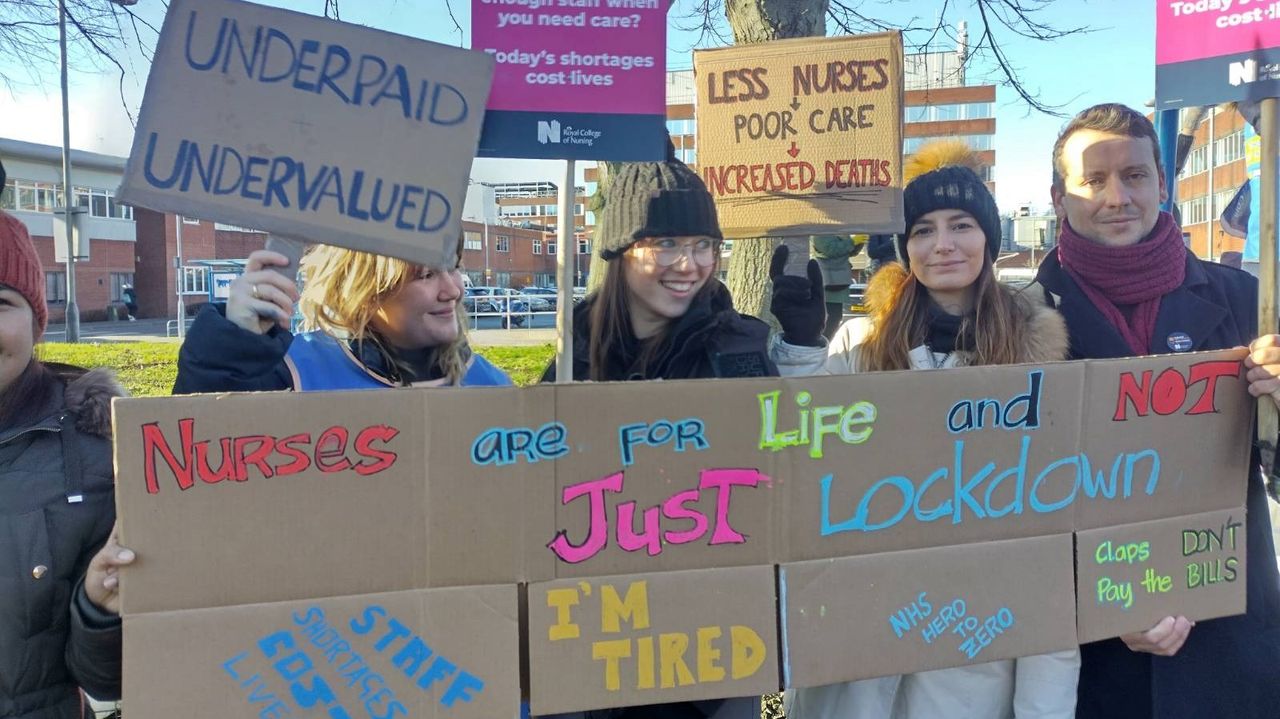 UNDERPAID
UNDERVALUED
enough staff when
you need care?
Today's shortages
cost lives
Royal College
of Nursing
LESS NURSES
POOR CARE
INCREASED DEATHS
Today's
cost
NURSES ARE FOR Life and NOT
JUST Lockdown
STAFF
SHORTAGES
COST
LIVE
I'M
TIRED
NHS
HERO
TO
ZERO
Claps DON'T
Pay the BILLS